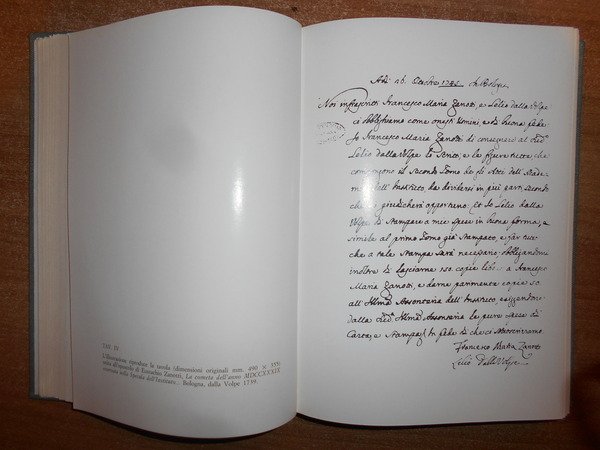 TAV. IV
L'illustrazione riproduce la tavola (dimensioni originali mm. 490 × 355)
unita all'opuscolo di Eustachio Zanotti, La cometa dell'anno MDCCXXXIX
osservata nella Specola dell'Istituto.. Bologna, dalla Volpe 1739.
Adì 26. Ottobre 1741 in Bologna
Noi infrascritti Francesco Maria Zanotti, e Lelio dalla Volpe
ci obblighiamo come onesti Uomini, e di buona fede
Io Francesco Maria Zanotti di consegnare al
Lelio dalla Volpe le scritture, e le figure tutte che
compongono il secondo Tomo de gli Atti dell'Acade-
mia dell' Instituto, da dividersi in più parti secondo
che si giudicherà opportuno. Et Io Lelio dalla
Volpe di stampare a mie spese in buona forma, e
simile al primo Tomo già stampato, e per tut-
che a tale stampa sarà necessario obbligandomi
inoltre di lasciarne 150 copie a Francesco
Maria Zanotti, e darne parimente copie 50
all' Assonteria dell' Instituto, esigendone
dalla Assonteria le pure spese di
Carta, e Stampa. In fede di che ci sottoscriviamo
Francesco Maria Zanotti
Lelio Dalla Volpe